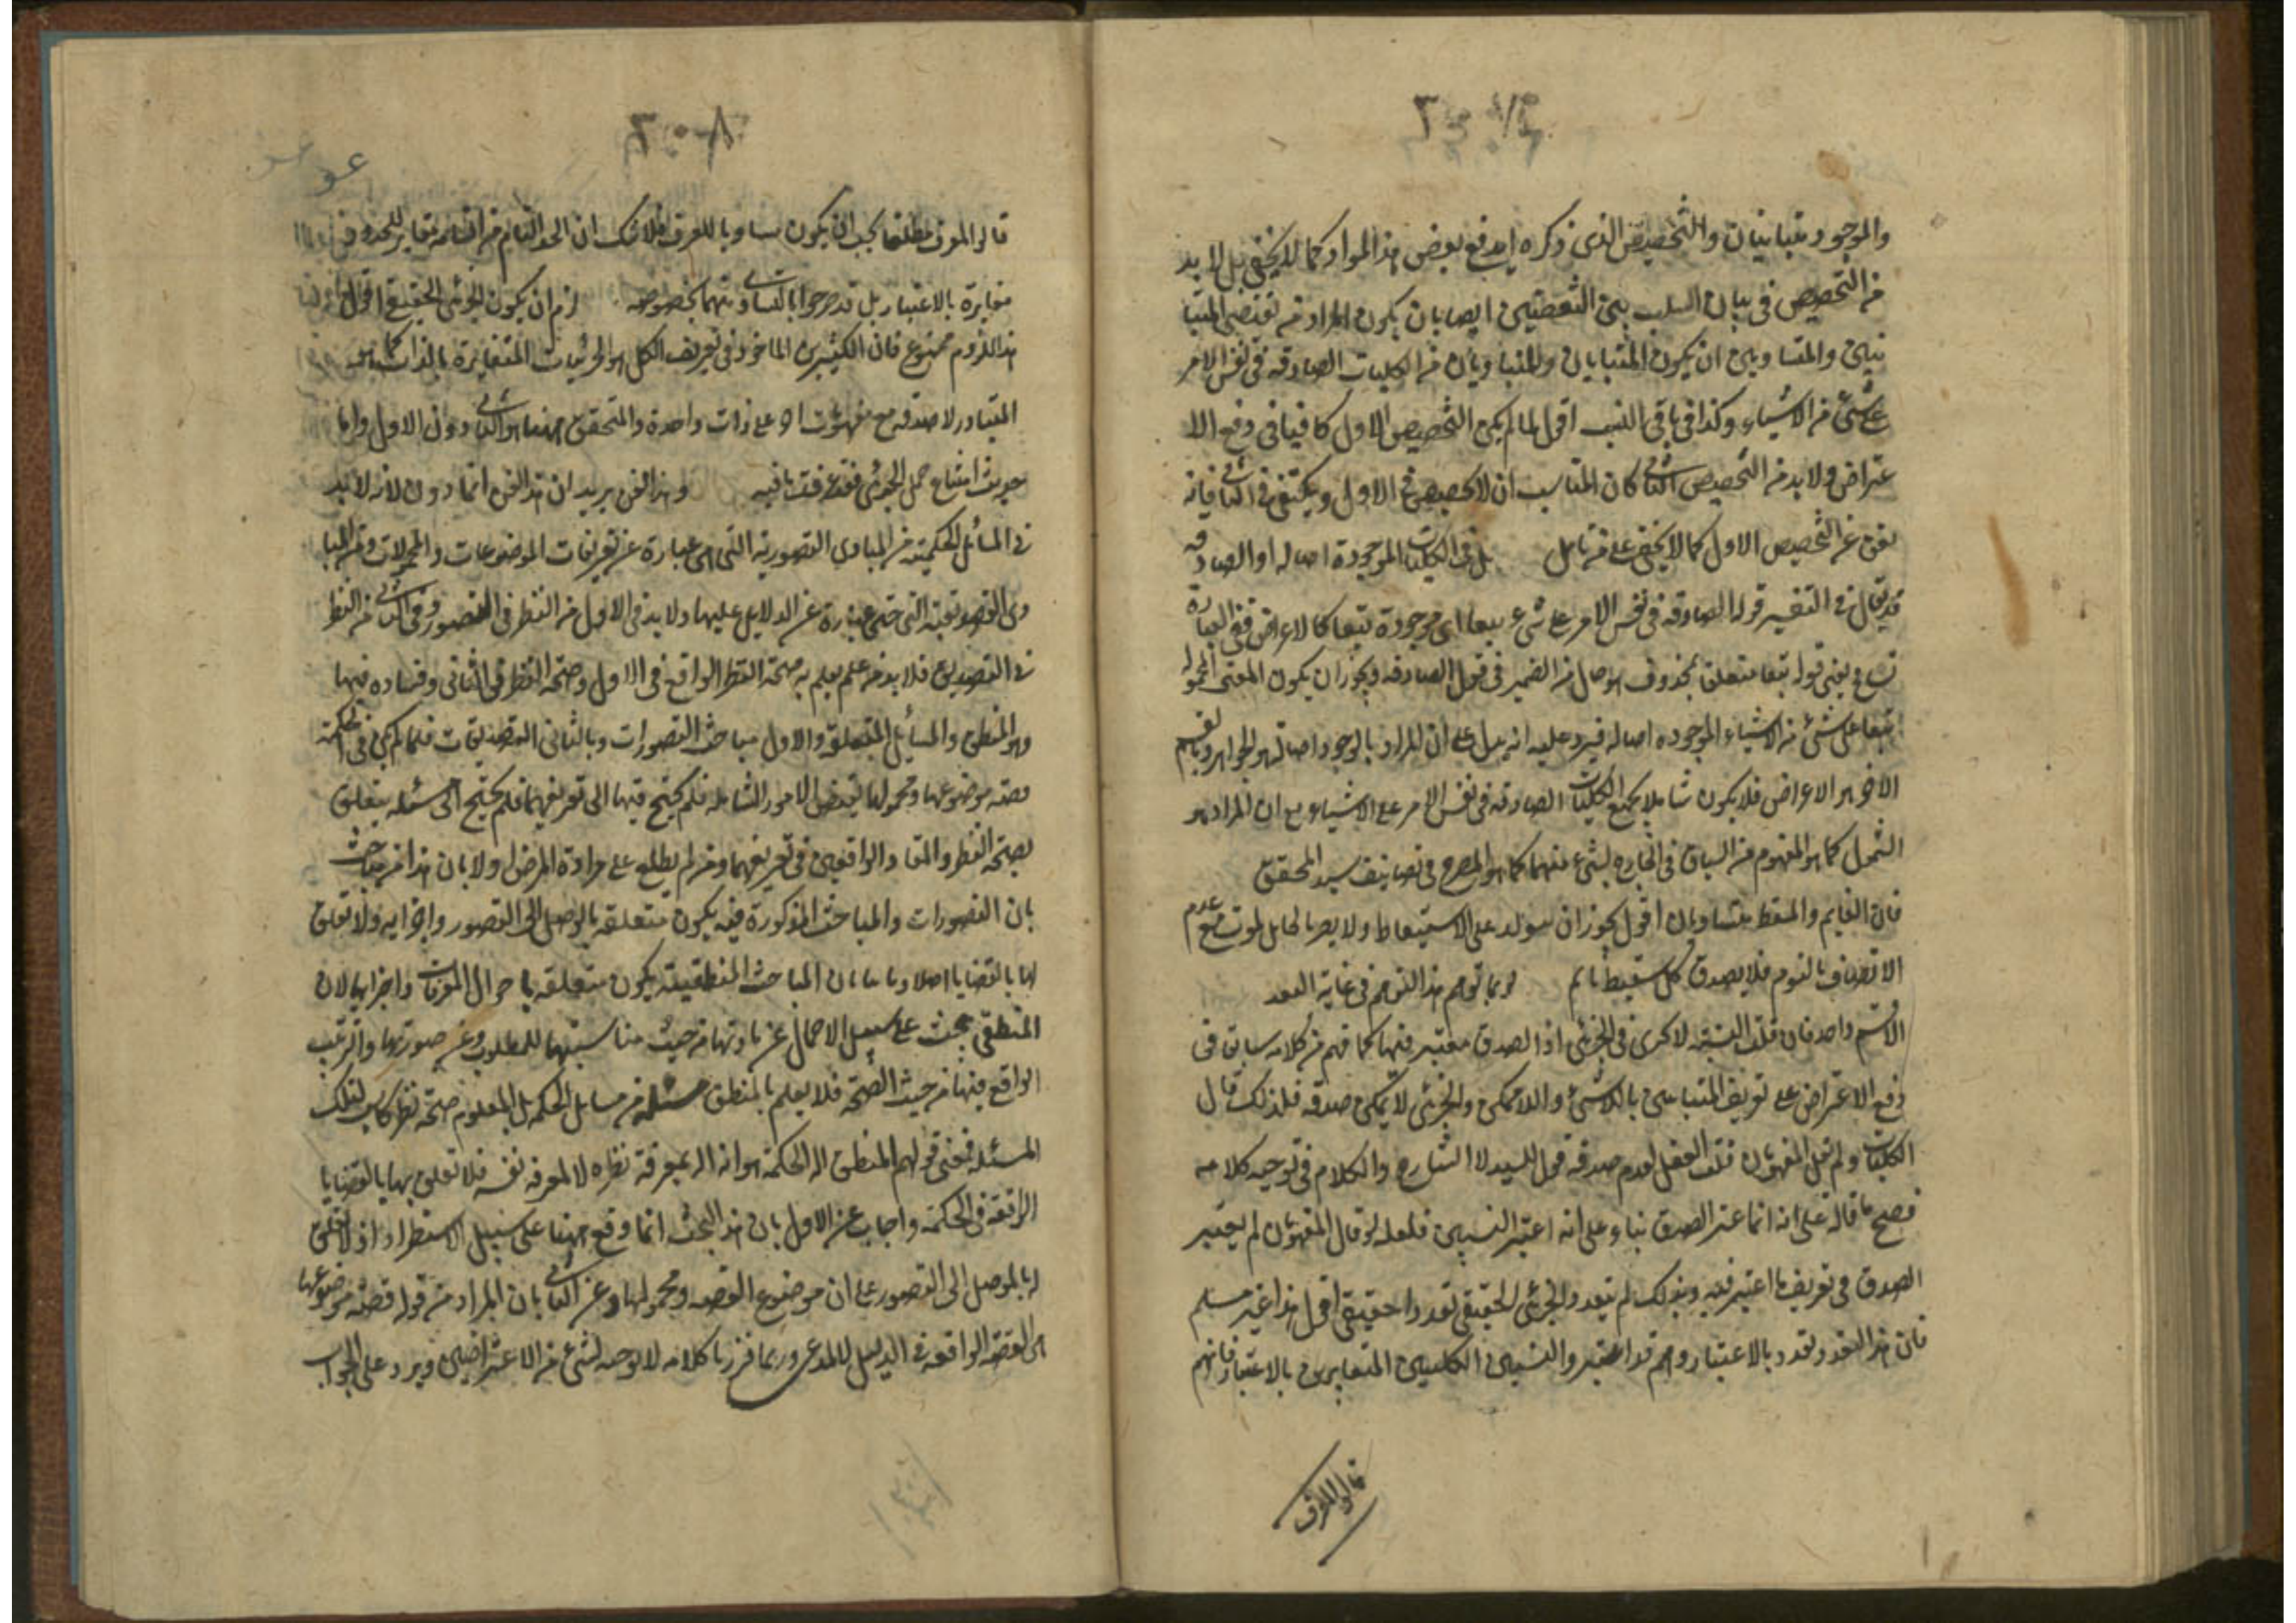 والموجود متباينان والتخصيص الذى ذكره يدفع بعض هذا المواد كما لا يخفى بل لا بد
من التخصيص فى بيان النسب بين النقيضين ايضا بان يكون المراد من نقيضى المتبا
ينين والمتساويين ان يكون المتباينان والمتساويان من الكليات الصادقه فى نفس الامر
على شئ من الاشياء وكذا فى باقى النسب اقول لما لم يكن التخصيص الاول كافيا فى دفع الا
عتراض ولا بد من التخصيص الثانى كان المناسب ان لا يخصص فى الاول ويكتفى فى الثانى فانه
يغنى عن التخصيص الاول كما لا يخفى على من تامل بل فى الكليات الموجودة اصاله او الصادقه
قد يقال فى التفسير قوله الصادقه فى نفس الامر على شئ تبعا اى موجودة تبعا كالاعراض ففى العبارة
تسامح يعنى قوله تبعا متعلق بمحذوف هو حال من الضمير فى قوله الصادقه ويجوز ان يكون المعنى المحموله
تبعا على شئ من الاشياء الموجوده اصاله فيرد عليه انه يدل على ان المراد بالوجود اصالة هو الجواهر وبالقسم
الاخر هو الاعراض فلا يكون شاملا لجميع الكليات الصادقه فى نفس الامر على الاشياء مع ان المراد هو
الشمول كما هو المفهوم من السياق فى الخارج لشئ منهما كما هو المصرح فى تصانيف سيد المحقق
فان النايم والمستيقظ متساويان اقول يجوز ان يتولد على الاستيقاظ ولا يصر الحال لموت مع عدم
الاتصاف بالنوم فلا يصدق كل مستيقظ نايم لربما توهم هذا التوهم فى غاية البعد
الاسم واحد فان قلت النسبه لا تجرى فى الجزئى اذ الصدق معتبر فيها كما فهم من كلامه سابق فى
دفع الاعتراض على تعريف المتباينين باللاشئ واللاممكن والجزئى لا يمكن صدقه فلذلك قال
الكليات ولم يقل المفهومان قلت العقل لعدم صدقه قول للسيد لا الشارح والكلام فى توجيه كلامه
فصح ما قاله على انه انما اعتبر الصدق بناء على انه اعتبر النسبتين فلعله لو قال المفهومان لم يعتبر
الصدق فى تعريف ما اعتبر فيه وبذلك لم يتعدد الجزئى الحقيقى تعددا حقيقى اقول هذا غير مسلم
فان هذا التعدد تعدد بالاعتبار وهم قد اعتبروا النسبتين الكليين المتغايرين بالاعتبار فانهم
قالوا المعرف
قالوا المعرف مطلقا يجب ان يكون مساويا للمعرف فلا شك ان الحد التام من اقسامه مغاير للمحدود
مغايرة بالاعتبار بل قد صرحوا بالتساوى بينهما بخصوصه لزم ان يكون الجزئى الحقيقى اقول
هذا اللزوم ممنوع فان الكثيرين الماخوذ فى تعريف الكلى هو الجزئيات المتغايرة بالذات كما هو
المتبادر لا صدقه مع مفهومات اخر على ذات واحدة والمتحقق ههنا هو الثانى دون الاول واما
حديث امتناع حمل الجزئى فقد عرفت ما فيه وهذا الفن يريد ان هذا الفن انما دون لانه لا بد
فى المسائل الحكميه من المبادى التصوريه التى هى عبارة عن تعريفات الموضوعات والمحمولات ومن المبا
دى التصديقيه التى هى عبارة عن الدلايل عليها ولا بد فى الاول من النظر فى التصور وفى الثانى من النظر
فى التصديق فلا بد من علم يعلم به صحة النظر الواقع فى الاول وصحة النظر فى الثانى وفساده فيها
وهو المنطق والمسائل المتعلقه والاول مباحث التصورات وبالثانى التصديقات فلما لم يكن فى الحكمة
قضيه موضوعها ومحمولها بعض الامور الشامله فلم يحتج فيها الى تعريفهما فلم يحتج الى مسئله يتعلق
بصحة النظر والفساد الواقعين فى تعريفهما ومن لم يطلع على مرادة اعترض اولا بان هذا من مباحث
بان التصورات والمباحث المذكورة فيه يكون متعلقه بالموصل الى التصور واجزايه ولا تعلق
لها بالقضايا اصلا وثانيا بان المباحث المنطقيه يكون متعلقه باحوال المعرفات واجزايها لان
المنطقى يبحث على سبيل الاجمال عن مادتها من حيث مناسبتها للمطلوب وعن صورتها والترتيب
الواقع فيها من حيث الصحة فلا يعلم بالمنطق مسئله من مسايل الحكمه بل المعلوم صحة نظر كاسب لتلك
المسئله فمعنى قولهم المنطق اله الحكمة هو انه اله لمعرفة نظره لا لمعرفه نفسه فلا تعلق بها بالقضايا
الواقعة فى الحكمة واجاب عن الاول بان هذا البحث انما وقع ههنا على سبيل الاستطراد اذ لا تعلق
له بالموصل الى التصور على ان موضوع القضيه ومحمولها وعن الثانى بان المراد من قوله قضيه موضوعها
اى القضيه الواقعه فى الدليل للمدعى وربما قررنا كلامه لا توجه لشئ من الاعتراضين ويرد على الجواب